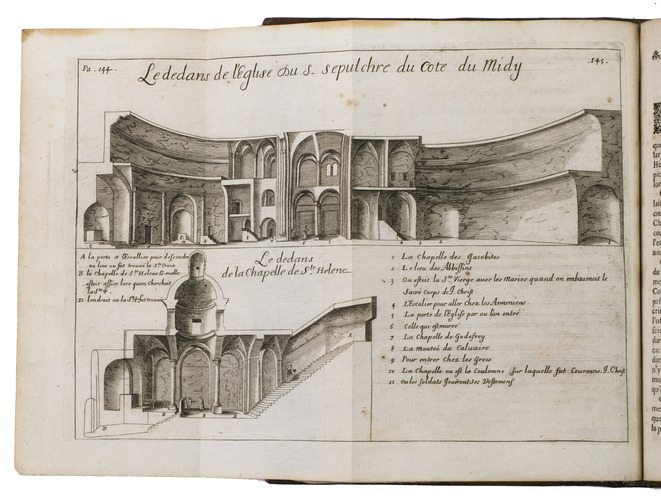 Pa. 144. 145.
Le dedans de l'Eglise du S. sepulchre du cote du Midy
A la porte et l'Escallier pour descendre
au lieu ou fut trouvé la Ste Croix
B la Chapelle de Ste Helene
estoit assise lors quon cherchoit
la Ste
D lendroit ou la Ste fut trouvé
Le dedans
de la Chapelle de Ste Helene
1 La Chapelle des Jacobites
2 Le lieu des Abbissins
3 Ou estoit la Ste Vierge avec les Maries quand on embaumoit le
Sacré Corps de J. Christ
4 L'Escalier pour aller Chez les Armeniens
5 La porte de l'Eglise par ou l'on entre
6 Celle qui est murré
7 La Chapelle de Godefroy
8 La Monteé du Caluaire
9 Pour entrer Chez les Grecs
10 La Chapelle ou est la Coulomne sur laquelle fut Couronné J. Christ
11 Ou les soldats Jouerent ses Vestemens
A
D